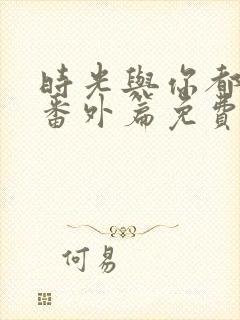 時光與你都
番外篇免費
何易